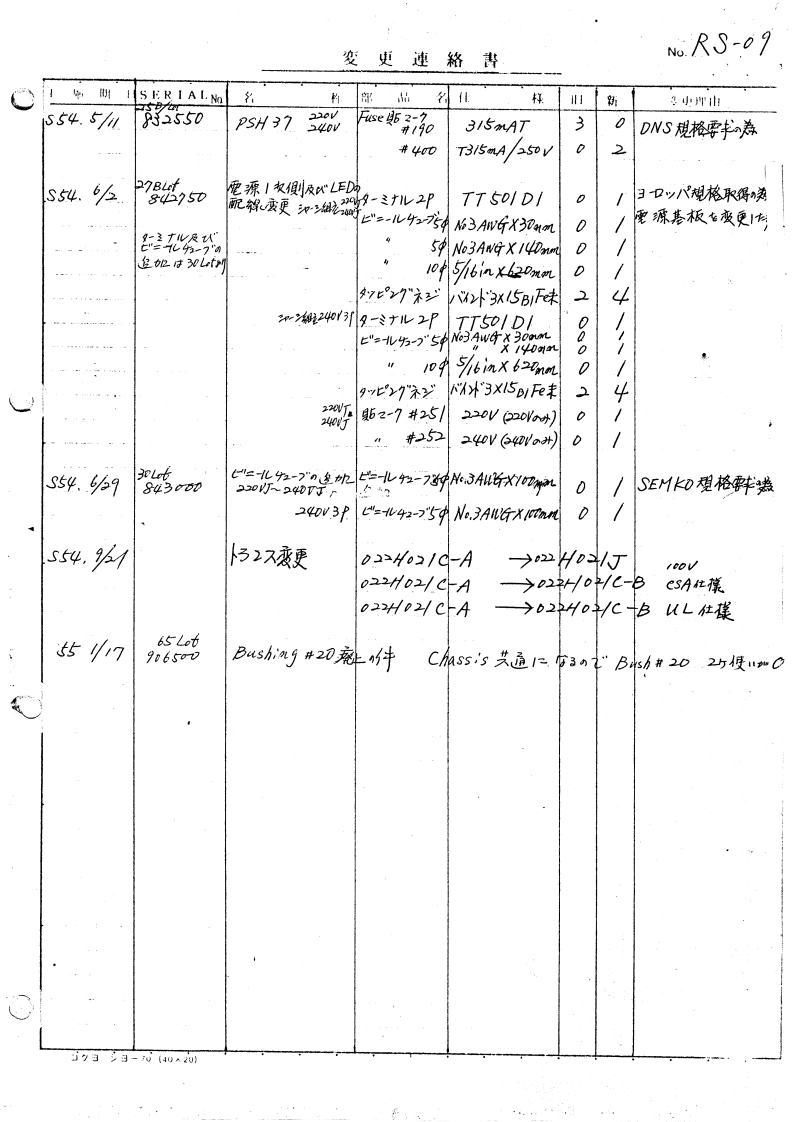 No. RS-09
変更連絡書
期日 SERIAL No. 名称 部品名 仕様 旧 新 変更理由
S54. 5/11 832550 PSH37 220V 240V Fuse貼マーク #190 315mAT 3 0 DNS規格要求の為
#400 T315mA/250V 0 2
S54. 6/2 27BLot 842750 電源1次側及びLEDの配線変更 シャーシ組立 220VJ 240VJ ターミナル2P TT501D1 0 1 ヨーロッパ規格取得の為
ビニールチューブ5φ No3AWG×30mm 0 1 電源基板を変更した
ターミナル及び
ビニールチューブの 〃 5φ No3AWG×140mm 0 1
追加は30Lotより 〃 10φ 5/16in×620mm 0 1
タッピングネジ バインド3×15B1Fe 2 4
シャーシ組立240V3P ターミナル2P TT501D1 0 1
ビニールチューブ5φ No3AWG×30mm 0 1
〃 ×140mm 0 1
〃 10φ 5/16in×620mm 0 1
タッピングネジ バインド3×15B1Fe 2 4
220VJ 240VJ 貼マーク #251 220V (220Vのみ) 0 1
〃 #252 240V (240Vのみ) 0 1
S54. 6/29 30Lot 843000 ビニールチューブの追加 220VJ~240VJ ビニールチューブ No.3AWG×100mm 0 1 SEMKO規格要求の為
240V3P ビニールチューブ5φ No.3AWG×100mm 0 1
S54. 9/21 トランス変更 022H021C-A →022H021J 100V
022H021C-A →022H021C-B CSA仕様
022H021C-A →022H021C-B UL仕様
55 1/17 65Lot 906500 Bushing #20廃止の件 Chassis共通になるので Bush #20 2ケ使い
コクヨ シヨ-70 (40×20)